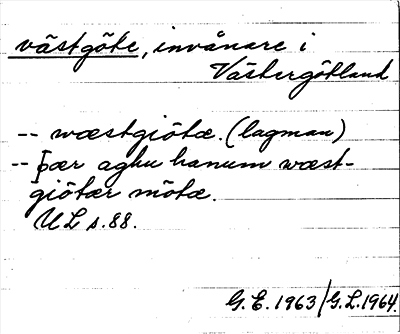 västgöte, invånare i
Västergötland
-- wæstgiötæ. (lagman)
-- þær aghu hanum wæst-
giötær mötæ.
UL s. 88.
G. E. 1963/G. L. 1964.